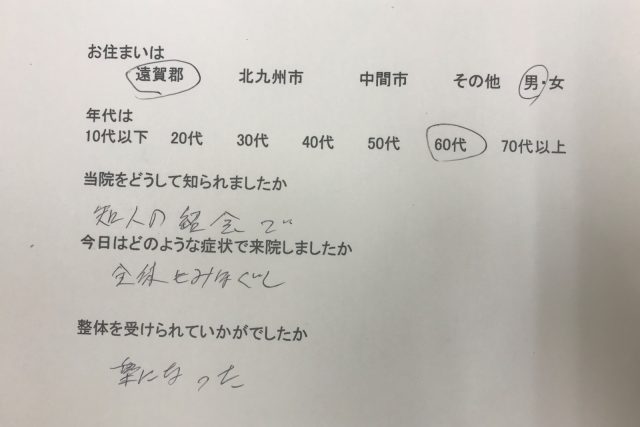 お住まいは
遠賀郡 北九州市 中間市 その他 男・女
年代は
10代以下 20代 30代 40代 50代 60代 70代以上
当院をどうして知られましたか
知人の紹介で
今日はどのような症状で来院しましたか
全体もみほぐし
整体を受けられていかがでしたか
楽になった